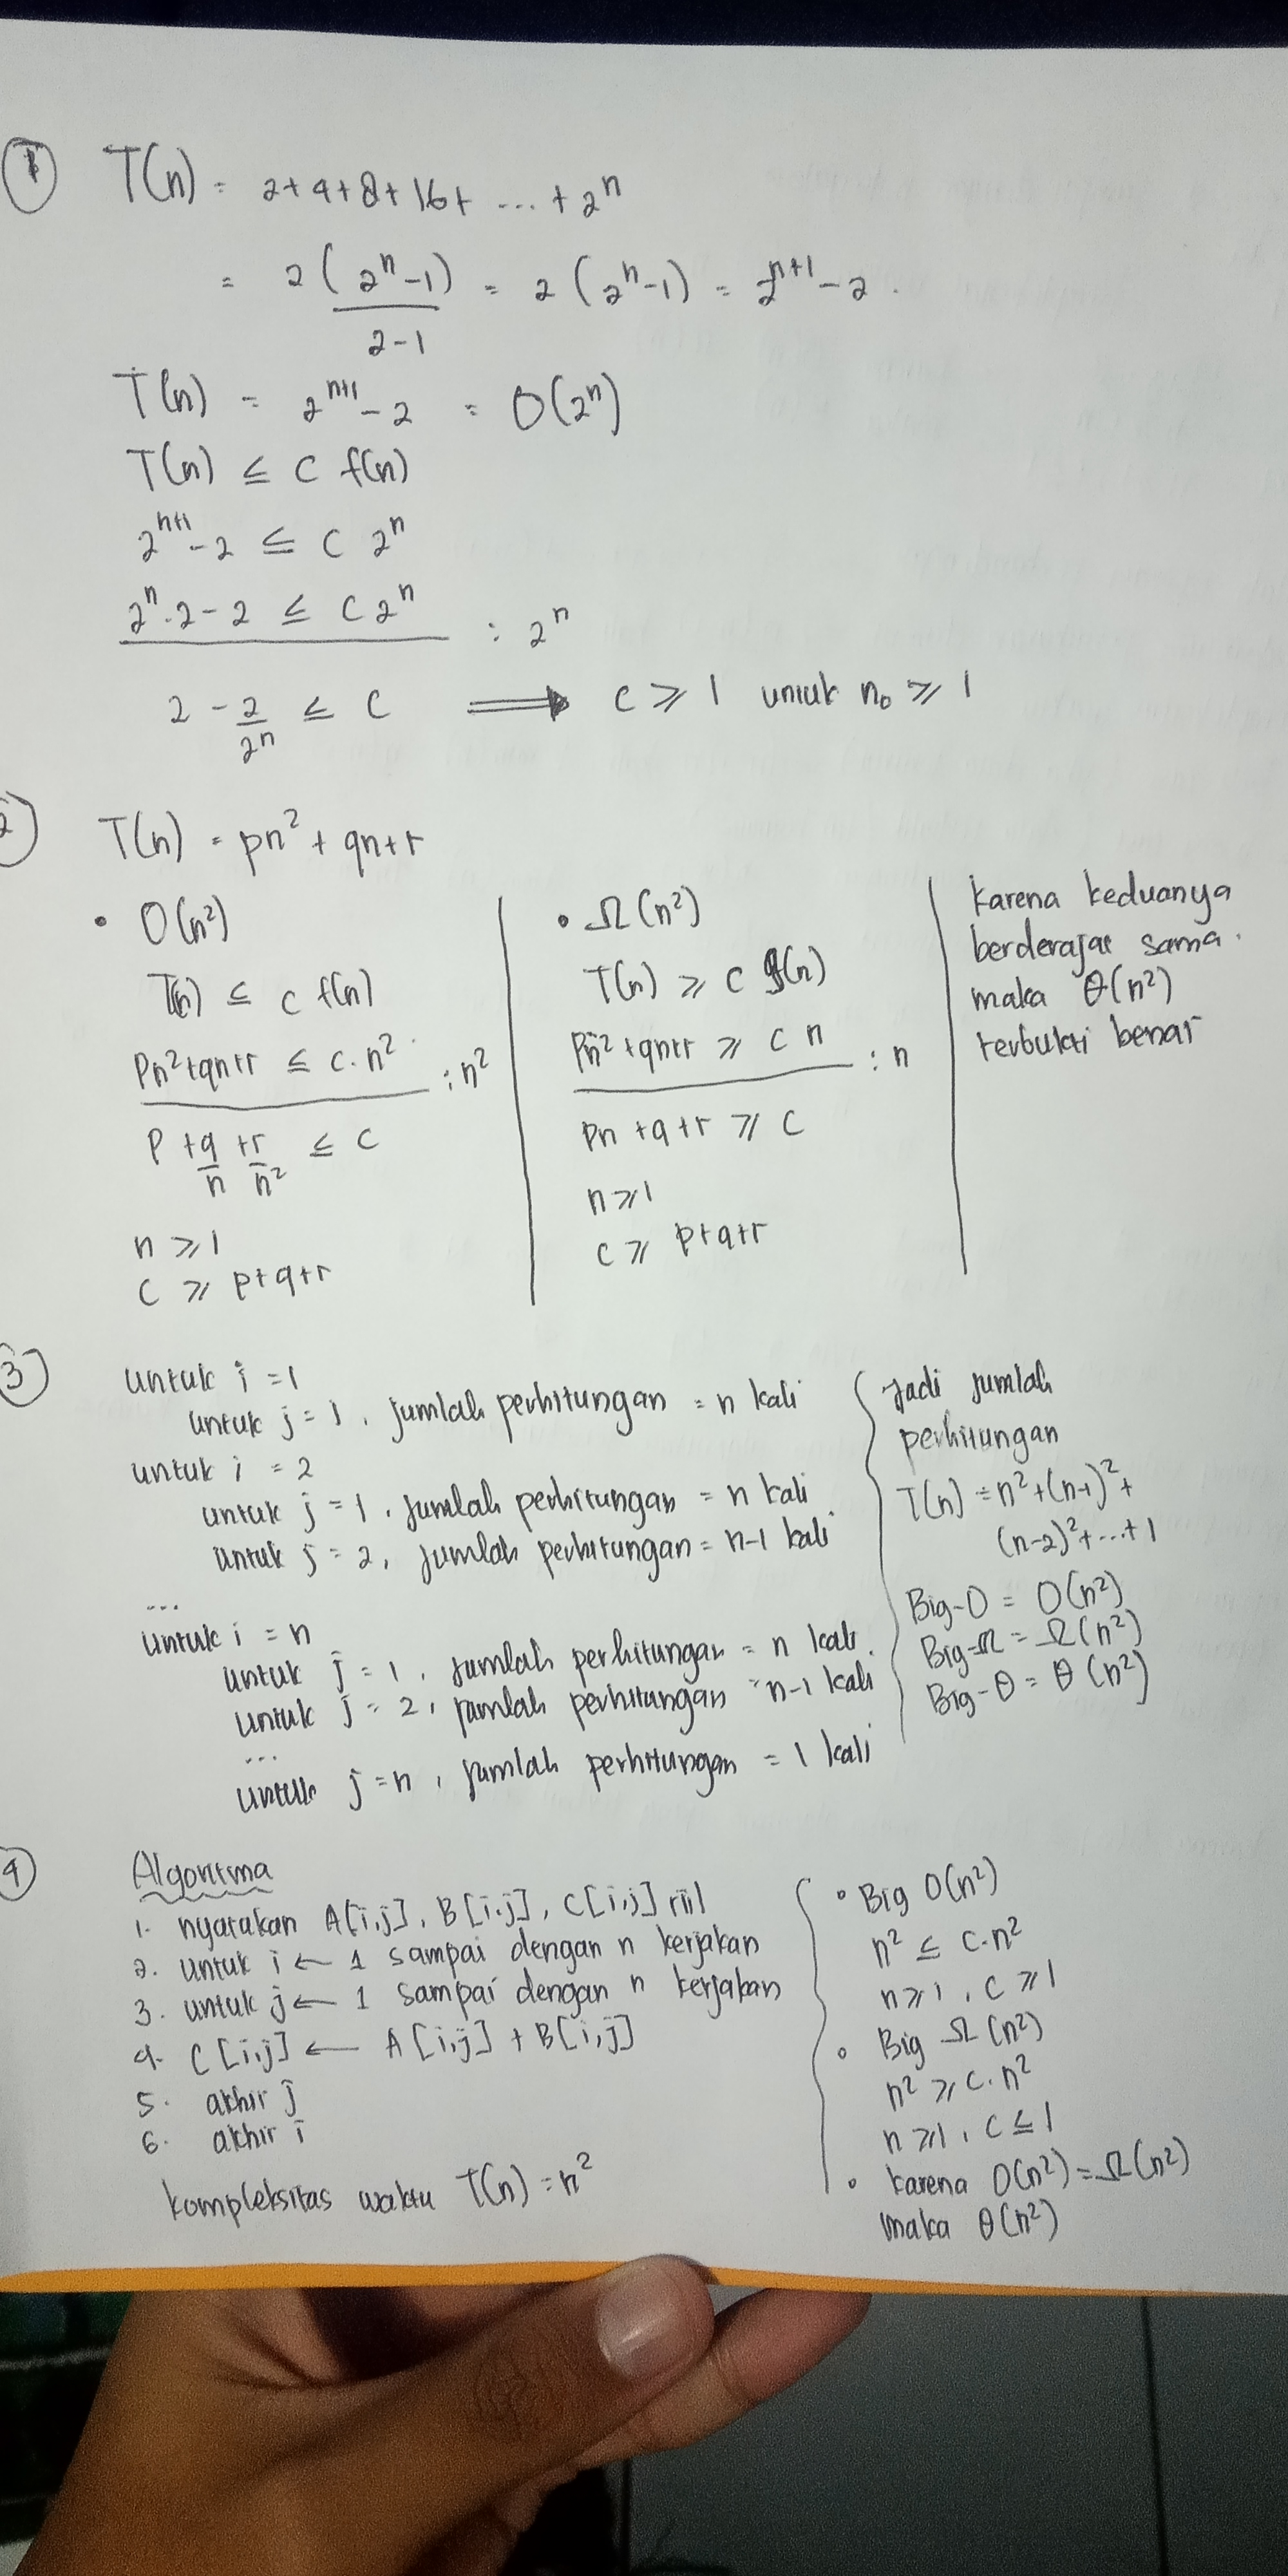 ① T(n) = 2+4+8+16+ ... + 2ⁿ
= 2 (2ⁿ-1)/(2-1) = 2 (2ⁿ-1) = 2ⁿ⁺¹ - 2.
T(n) = 2ⁿ⁺¹ - 2 = O(2ⁿ)
T(n) ≤ C f(n)
2ⁿ⁺¹ - 2 ≤ C 2ⁿ
2ⁿ.2 - 2 ≤ C 2ⁿ : 2ⁿ
2 - 2/2ⁿ ≤ C ⟹ C ≥ 1 untuk n₀ ≥ 1
2) T(n) = pn² + qn+r
• O(n²)
T(n) ≤ C f(n)
Pn²+qn+r ≤ C.n² : n²
P + q/n + r/n² ≤ C
n ≥ 1
C ≥ p+q+r
• Ω(n²)
T(n) ≥ C g(n)
Pn²+qn+r ≥ C n : n
Pn +q+r ≥ C
n ≥ 1
C ≥ p+q+r
Karena keduanya
berderajat sama.
maka θ(n²)
terbukti benar
③ untuk i = 1
untuk j = 1, jumlah perhitungan = n kali
untuk i = 2
untuk j = 1, jumlah perhitungan = n kali
untuk j = 2, jumlah perhitungan = n-1 kali
...
untuk i = n
untuk j = 1, jumlah perhitungan = n kali.
untuk j = 2, jumlah perhitungan = n-1 kali
...
untuk j = n, jumlah perhitungan = 1 kali
Jadi jumlah
perhitungan
T(n) = n²+(n-1)²+
(n-2)²+...+1
Big-O = O(n²)
Big-Ω = Ω(n²)
Big-θ = θ(n²)
4) Algoritma
1. nyatakan A[i,j], B[i,j], C[i,j] riil
2. untuk i ← 1 sampai dengan n kerjakan
3. untuk j ← 1 sampai dengan n kerjakan
4. C[i,j] ← A[i,j] + B[i,j]
5. akhir j
6. akhir i
kompleksitas waktu T(n) = n²
• Big O(n²)
n² ≤ C.n²
n ≥ 1, C ≥ 1
• Big Ω(n²)
n² ≥ C.n²
n ≥ 1, C ≤ 1
• karena O(n²) = Ω(n²)
maka θ(n²)